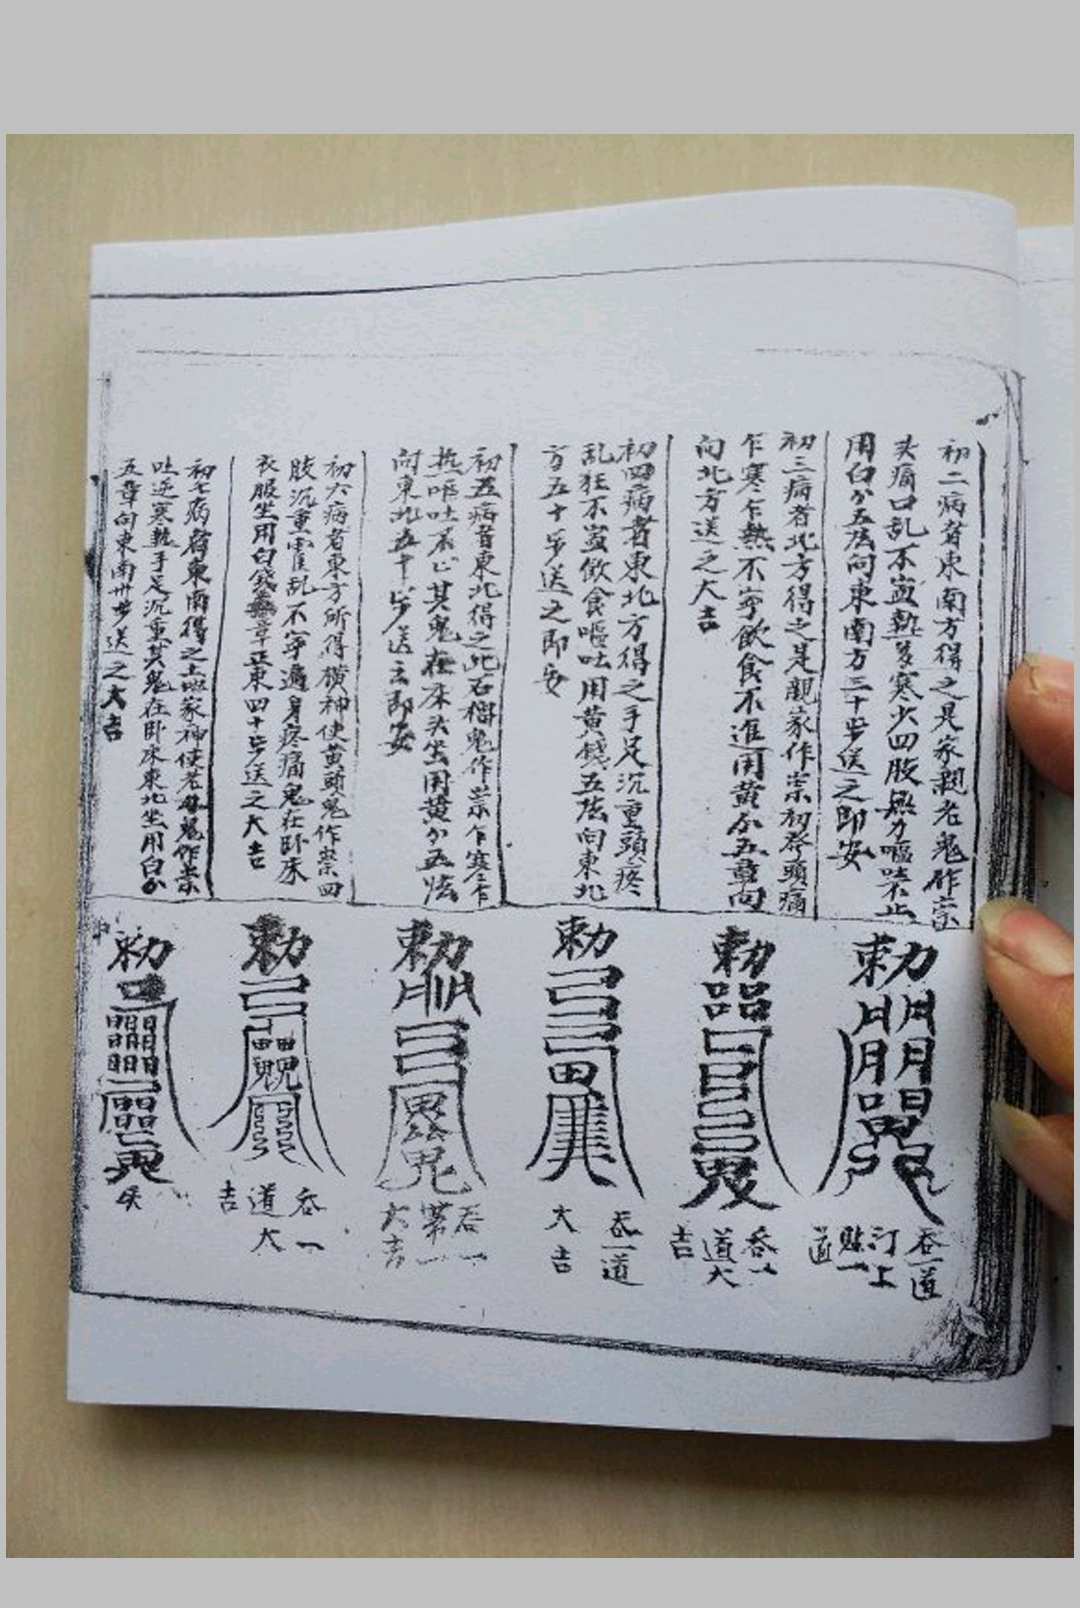 初二病者東南方得之是家親老鬼作祟
头痛口乱不寍熱多寒少四肢無力嘔吐不止
用白分五张向東南方三十步送之即安
初三病者北方得之是親家作祟初發頭痛
乍寒乍熱不寧飲食不進用黄分五章向
向北方送之大吉
初四病者東北方得之手足沉重頭疼
乱狂不寍飲食嘔吐用黄錢五张向東北
方五十步送之即安
初五病者東北得之此石榴鬼作祟乍寒乍
热嘔吐不止其鬼在床头坐用黄分五张
向東北五十步送之即安
初六病者東方所得横神使黄頭鬼作祟四
肢沉重霍乱不寧遍身疼痛鬼在卧床
衣服坐用白錢章正東四十步送之大吉
初七病者東南得之土地家神使老母鬼作祟
吐逆寒熱手足沉重其鬼在卧床東北坐用白分
五章向東南卅步送之大吉
敕
吞一道
汀上
貼一
道
敕
吞一
道大
吉
敕
吞一道
大吉
敕
吞一
大吉
敕
吞一
道大
吉
敕